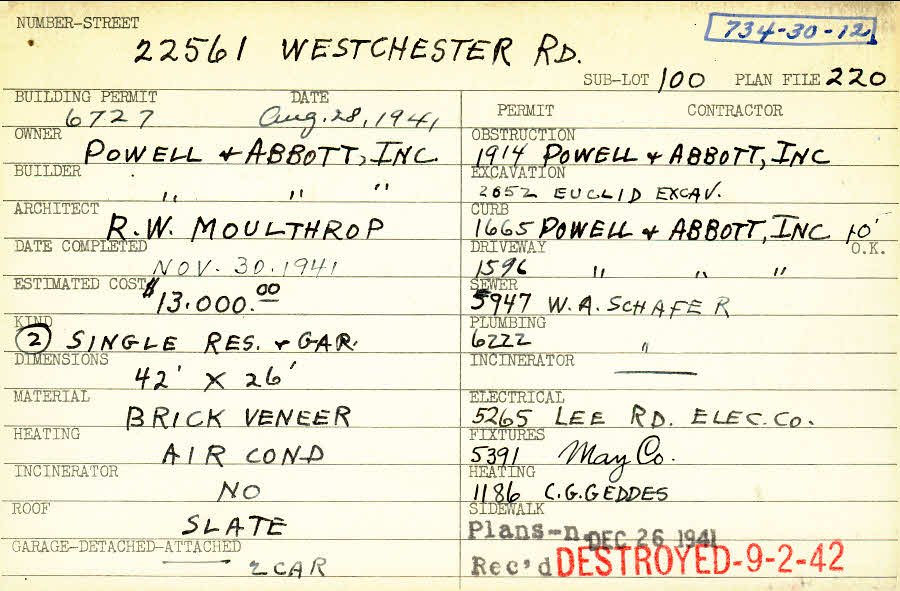 NUMBER-STREET
734-30-12
22561 WESTCHESTER RD.
SUB-LOT 100 PLAN FILE 220
BUILDING PERMIT DATE
6727 Aug. 28, 1941
OWNER
POWELL & ABBOTT, INC.
BUILDER
" " "
ARCHITECT
R.W. MOULTHROP
DATE COMPLETED
NOV. 30. 1941
ESTIMATED COST
$13.000.00
KIND
2 SINGLE RES. & GAR.
DIMENSIONS
42' X 26'
MATERIAL
BRICK VENEER
HEATING
AIR COND
INCINERATOR
NO
ROOF
SLATE
GARAGE-DETACHED-ATTACHED
2 CAR
PERMIT CONTRACTOR
OBSTRUCTION
1914 POWELL & ABBOTT, INC
EXCAVATION
2652 EUCLID EXCAV.
CURB
1665 POWELL & ABBOTT, INC 10'
DRIVEWAY O.K.
1596 " " "
SEWER
5947 W.A. SCHAFER
PLUMBING
6222 "
INCINERATOR
ELECTRICAL
5265 LEE RD. ELEC. CO.
FIXTURES
5391 May Co.
HEATING
1186 C.G. GEDDES
SIDEWALK
Plans-n DEC 26 1941
Rec'd DESTROYED-9-2-42